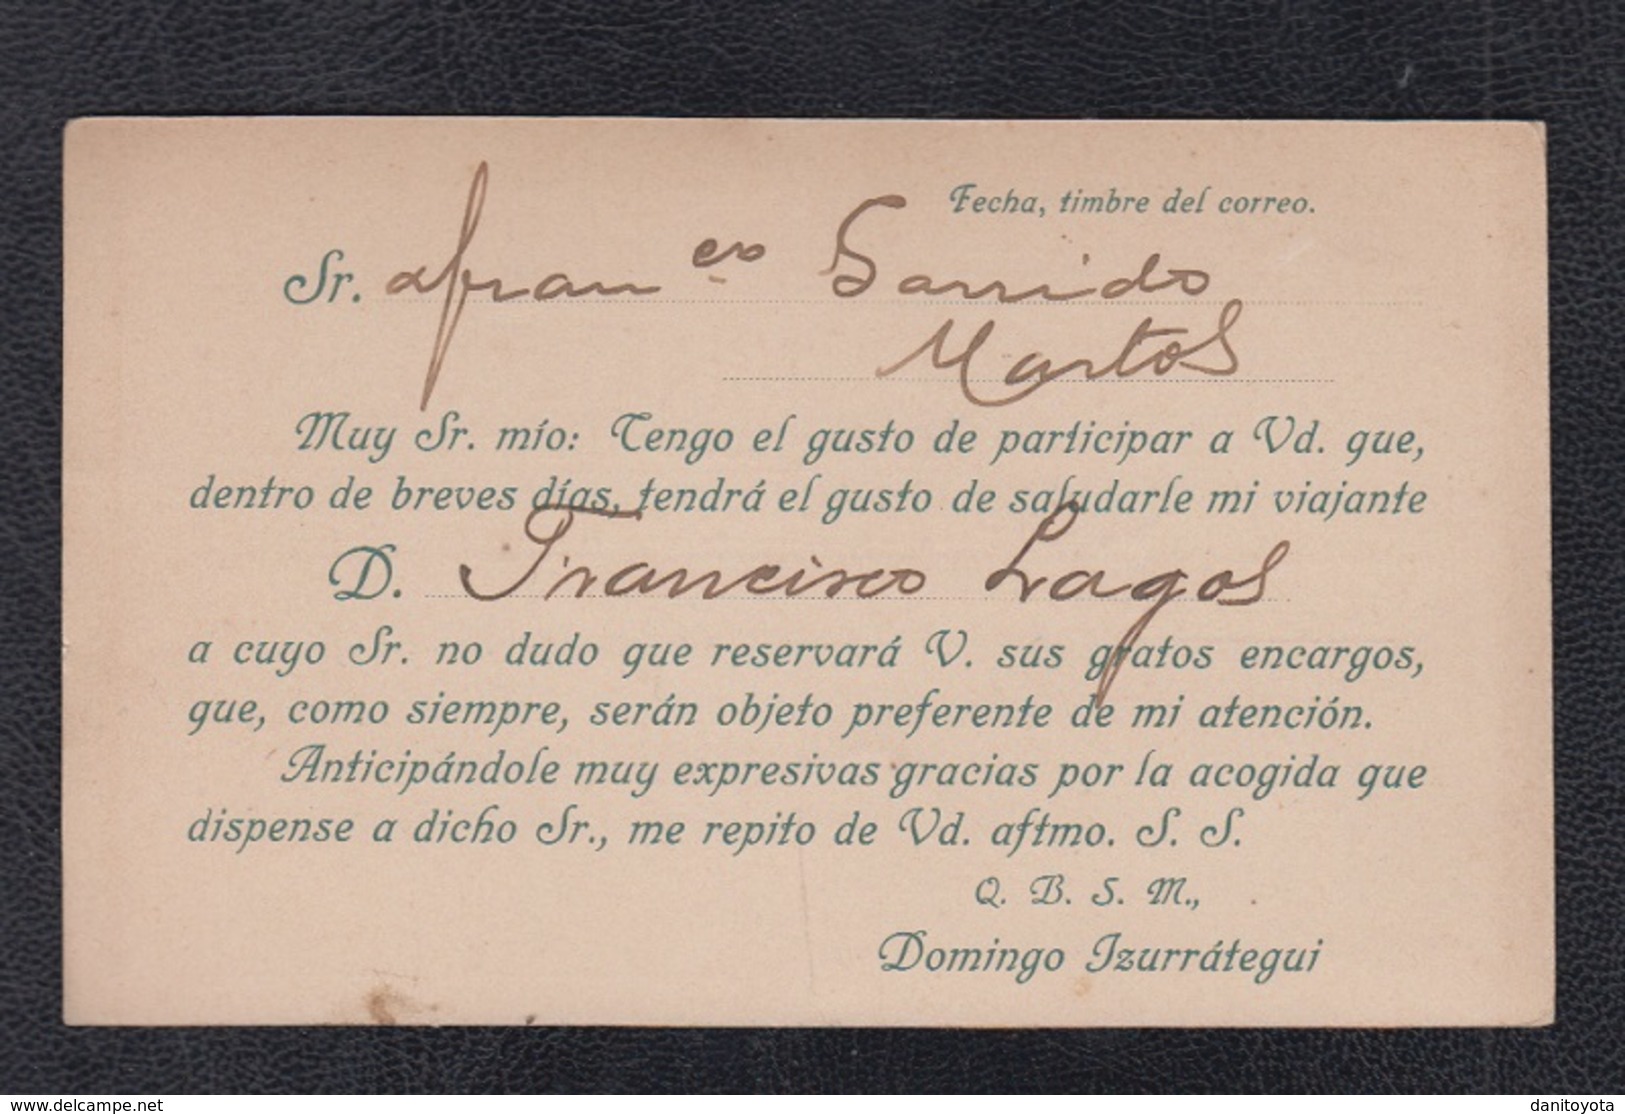 Fecha, timbre del correo.
Sr. Dn Franco Garrido
Martos
Muy Sr. mío: Tengo el gusto de participar a Vd. que,
dentro de breves días, tendrá el gusto de saludarle mi viajante
D. Francisco Lagos
a cuyo Sr. no dudo que reservará V. sus gratos encargos,
que, como siempre, serán objeto preferente de mi atención.
Anticipándole muy expresivas gracias por la acogida que
dispense a dicho Sr., me repito de Vd. aftmo. S. S.
Q. B. S. M.,
Domingo Izurrátegui
www.delcampe.net
danitoyota